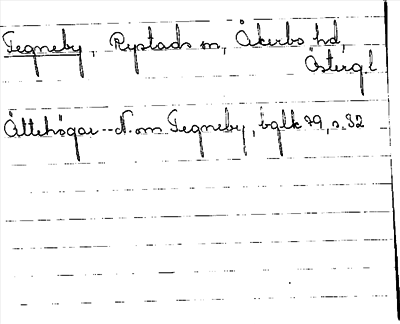 Tegneby, Rystads sn, Åkerbo hd,
Östergl
Ättehögar -- N. om Tegneby, bglk 79, s. 32